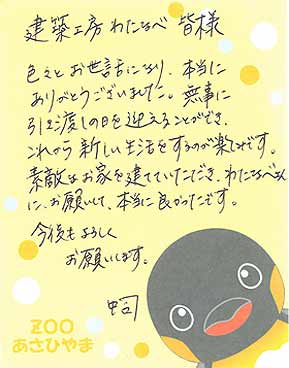 建築工房 わたなべ 皆様
色々とお世話になり、本当に
ありがとうございました。無事に
引き渡しの日を迎えることができ、
これから新しい生活をするのが楽しみです。
素敵なお家を建てていただき、わたなべさん
に、お願いして、本当に良かったです。
今後もよろしく
お願いします。
ZOO
あさひやま